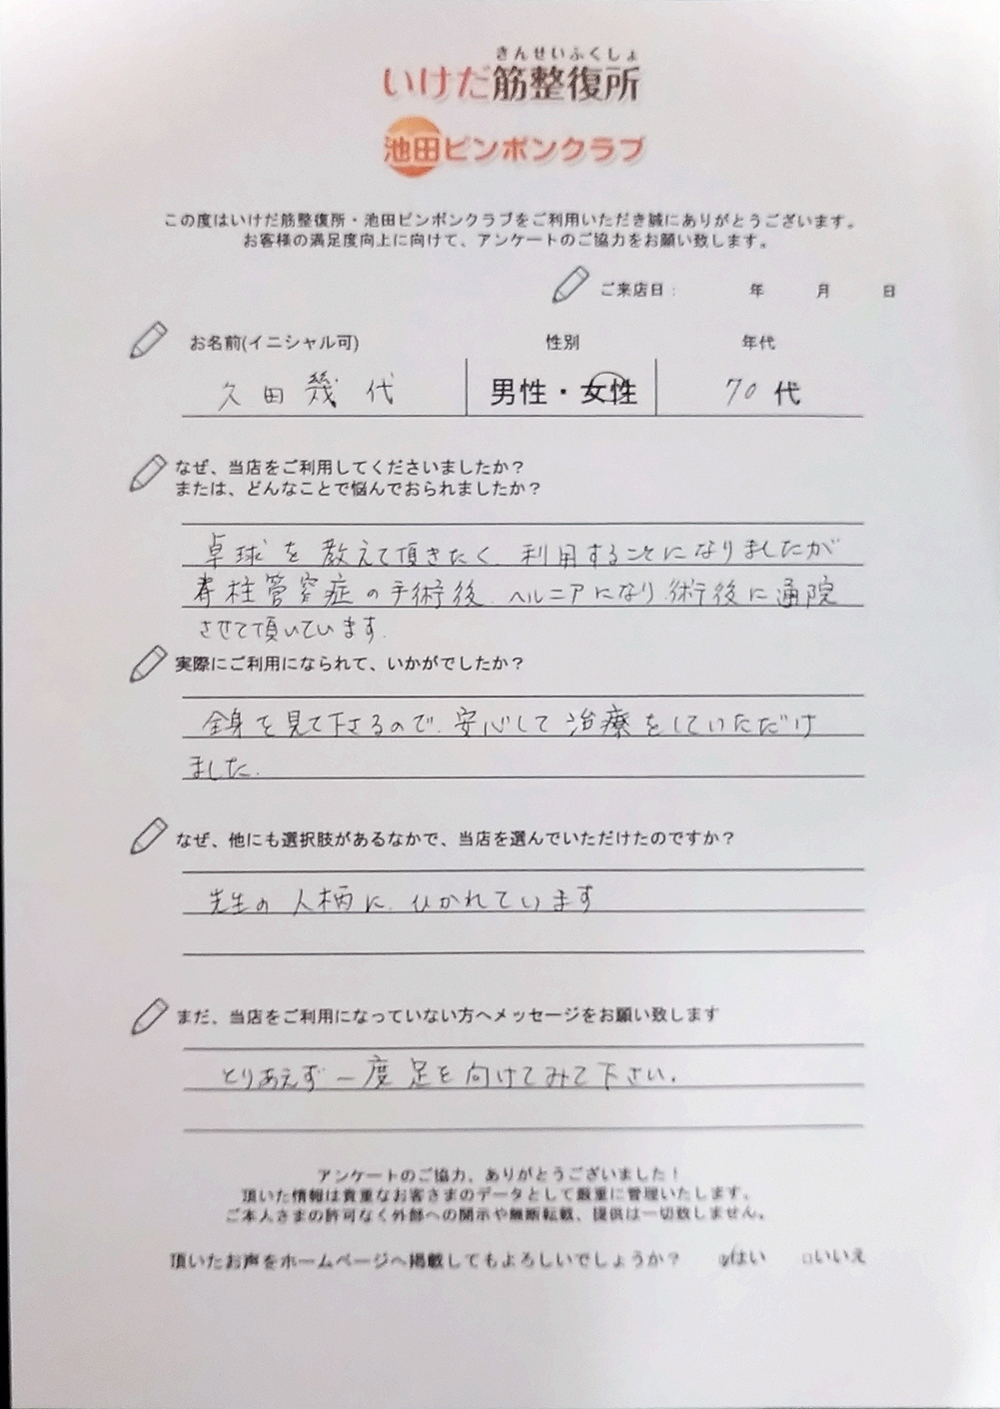 きんせいふくしょ
いけだ筋整復所
池田ピンポンクラブ
この度はいけだ筋整復所・池田ピンポンクラブをご利用いただき誠にありがとうございます。
お客様の満足度向上に向けて、アンケートのご協力をお願い致します。
ご来店日： 年 月 日
お名前(イニシャル可) 性別 年代
久田幾代 男性・女性 70代
なぜ、当店をご利用してくださいましたか？
または、どんなことで悩んでおられましたか？
卓球を教えて頂きたく、利用することになりましたが
脊柱管窄症の手術後、ヘルニアになり、術後に通院
させて頂いています。
実際にご利用になられて、いかがでしたか？
全身を見て下さるので、安心して治療をしていただけ
ました。
なぜ、他にも選択肢があるなかで、当店を選んでいただけたのですか？
先生の人柄に、ひかれています
まだ、当店をご利用になっていない方へメッセージをお願い致します
とりあえず一度足を向けてみて下さい。
アンケートのご協力、ありがとうございました！
頂いた情報は貴重なお客さまのデータとして厳重に管理いたします。
ご本人さまの許可なく外部への開示や無断転載、提供は一切致しません。
頂いたお声をホームページへ掲載してもよろしいでしょうか？ ☑はい □いいえ